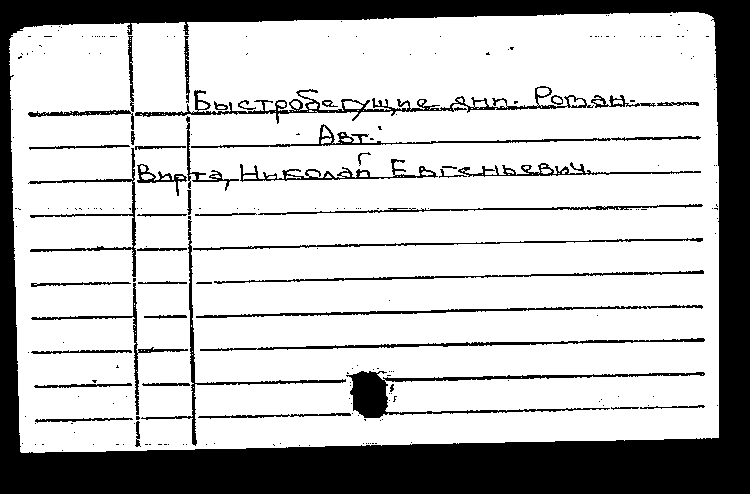 Быстробегущие дни. Роман.
Авт.:
Вирта, Николай Евгеньевич.